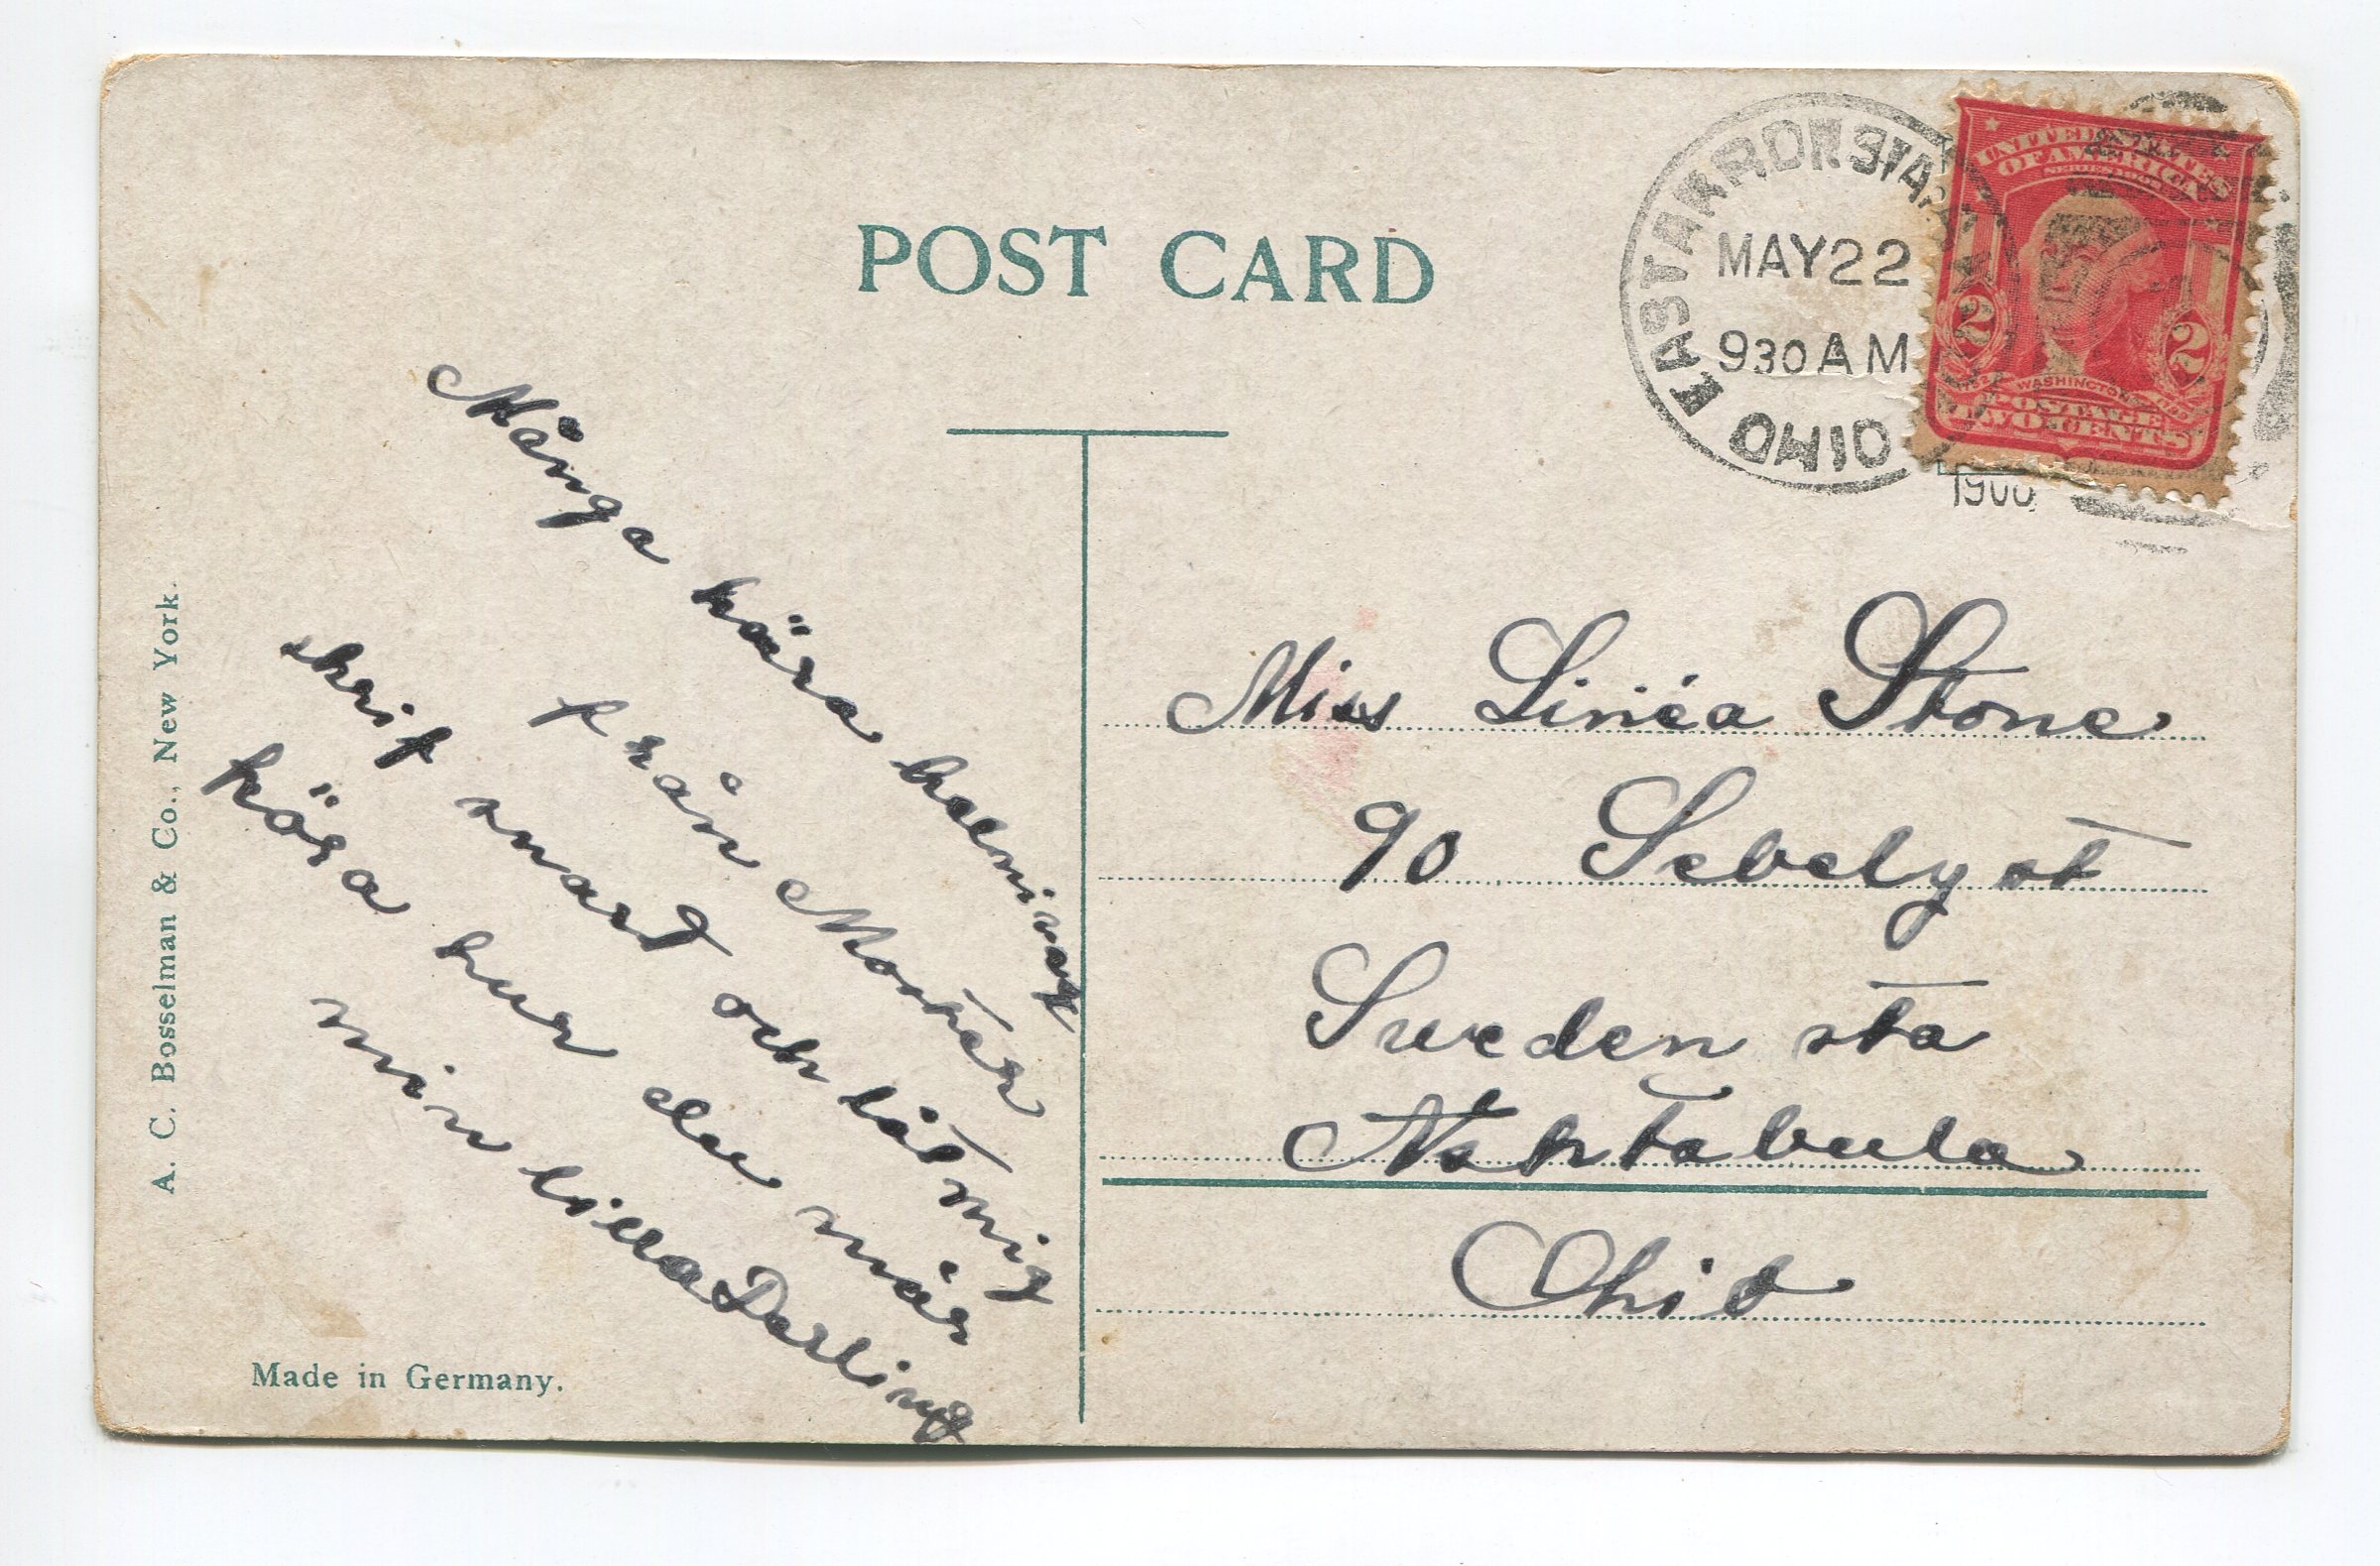 POST CARD
EAST AKRON STA.
MAY 22
930 AM
OHIO
UNITED STATES
OF AMERICA
SERIES 1902
2 2
WASHINGTON
POSTAGE
TWO CENTS
Många kära helning
från Moster
skrif snart och låt mig
höra hur du mår
min lilla Darling
Miss Linéa Stone
90 Sebely st
Sweden sta
Ashtabula
Ohio
A. C. Bosselman & Co., New York.
Made in Germany.